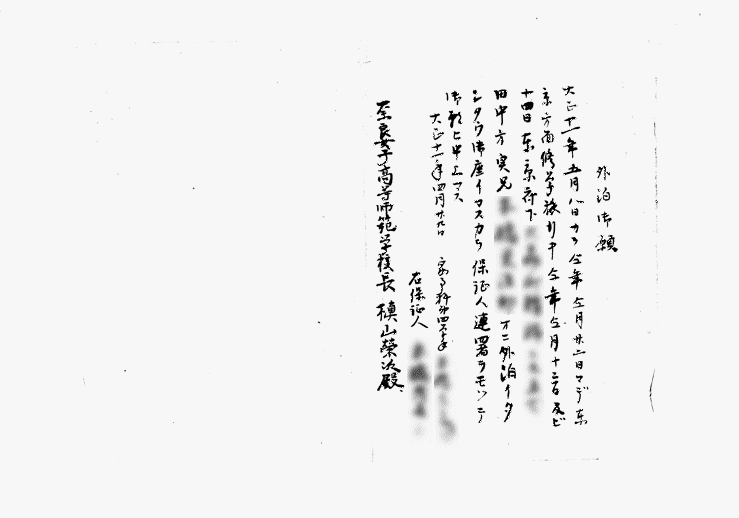 外泊御願
大正十一年五月八日カラ仝年仝月廿二日マデ東
京方面修学旅行中仝年仝月十三日及ビ
十四日東京府下
田中方実兄 方ニ外泊イタ
シタウ御座イマスカラ保証人連署ヲモツテ
御願ヒ申上マス
大正十一年四月廿九日
家事科第四学年
右保証人
奈良女子高等師範学校長 槙山榮次殿